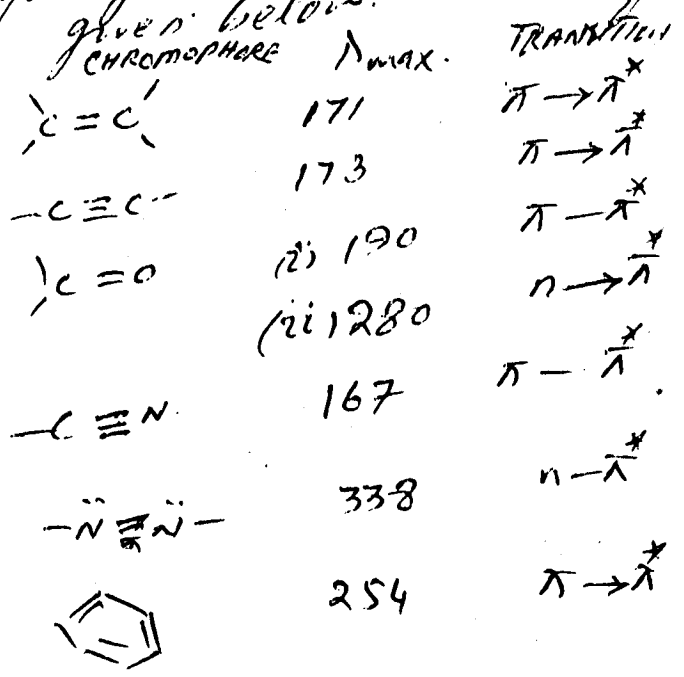 given below.
CHROMOPHORE λmax. TRANSITION
>C=C< 171 π→π*
-C≡C- 173 π→π*
>C=O (i) 190 π-π*
(ii) 280 n→π*
-C≡N 167 π-π*
-N̈=N̈- 338 n-π*
254 π→π*